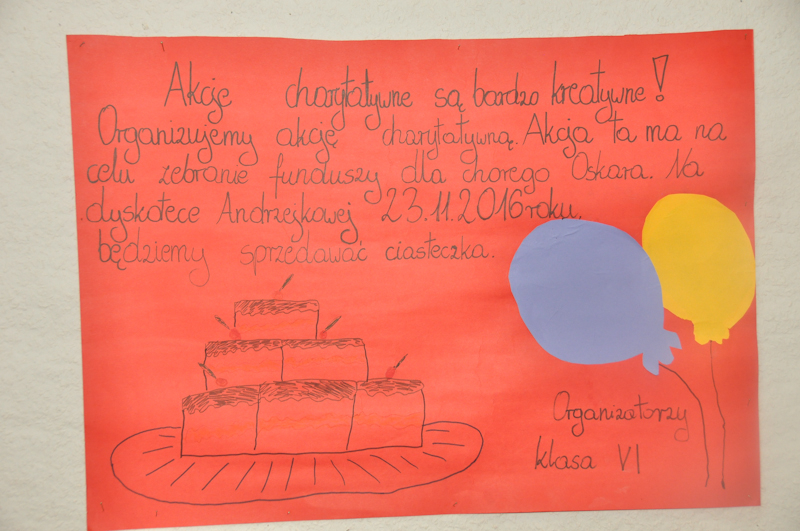 Akcje charytatywne są bardzo kreatywne!
Organizujemy akcję charytatywną. Akcja ta ma na
celu zebranie funduszy dla chorego Oskara. Na
dyskotece Andrzejkowej 23.11.2016roku.
będziemy sprzedawać ciasteczka.
Organizatorzy
klasa VI